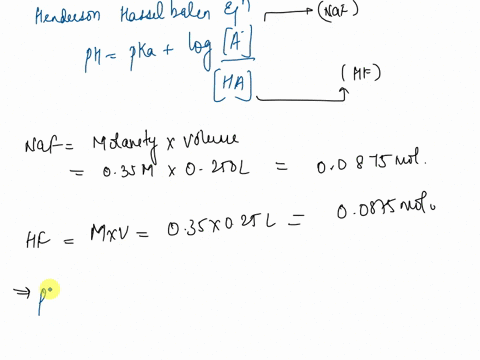 Henderson Hasselbalen Eqn
(NaF)
pH = pKa + log [A-]
[HA]
(HF)
NaF = Molarity x volume
= 0.35M x 0.250L = 0.0875 mol.
HF = MxV = 0.35 x 0.25 L = 0.0875 mol.
⇒ p